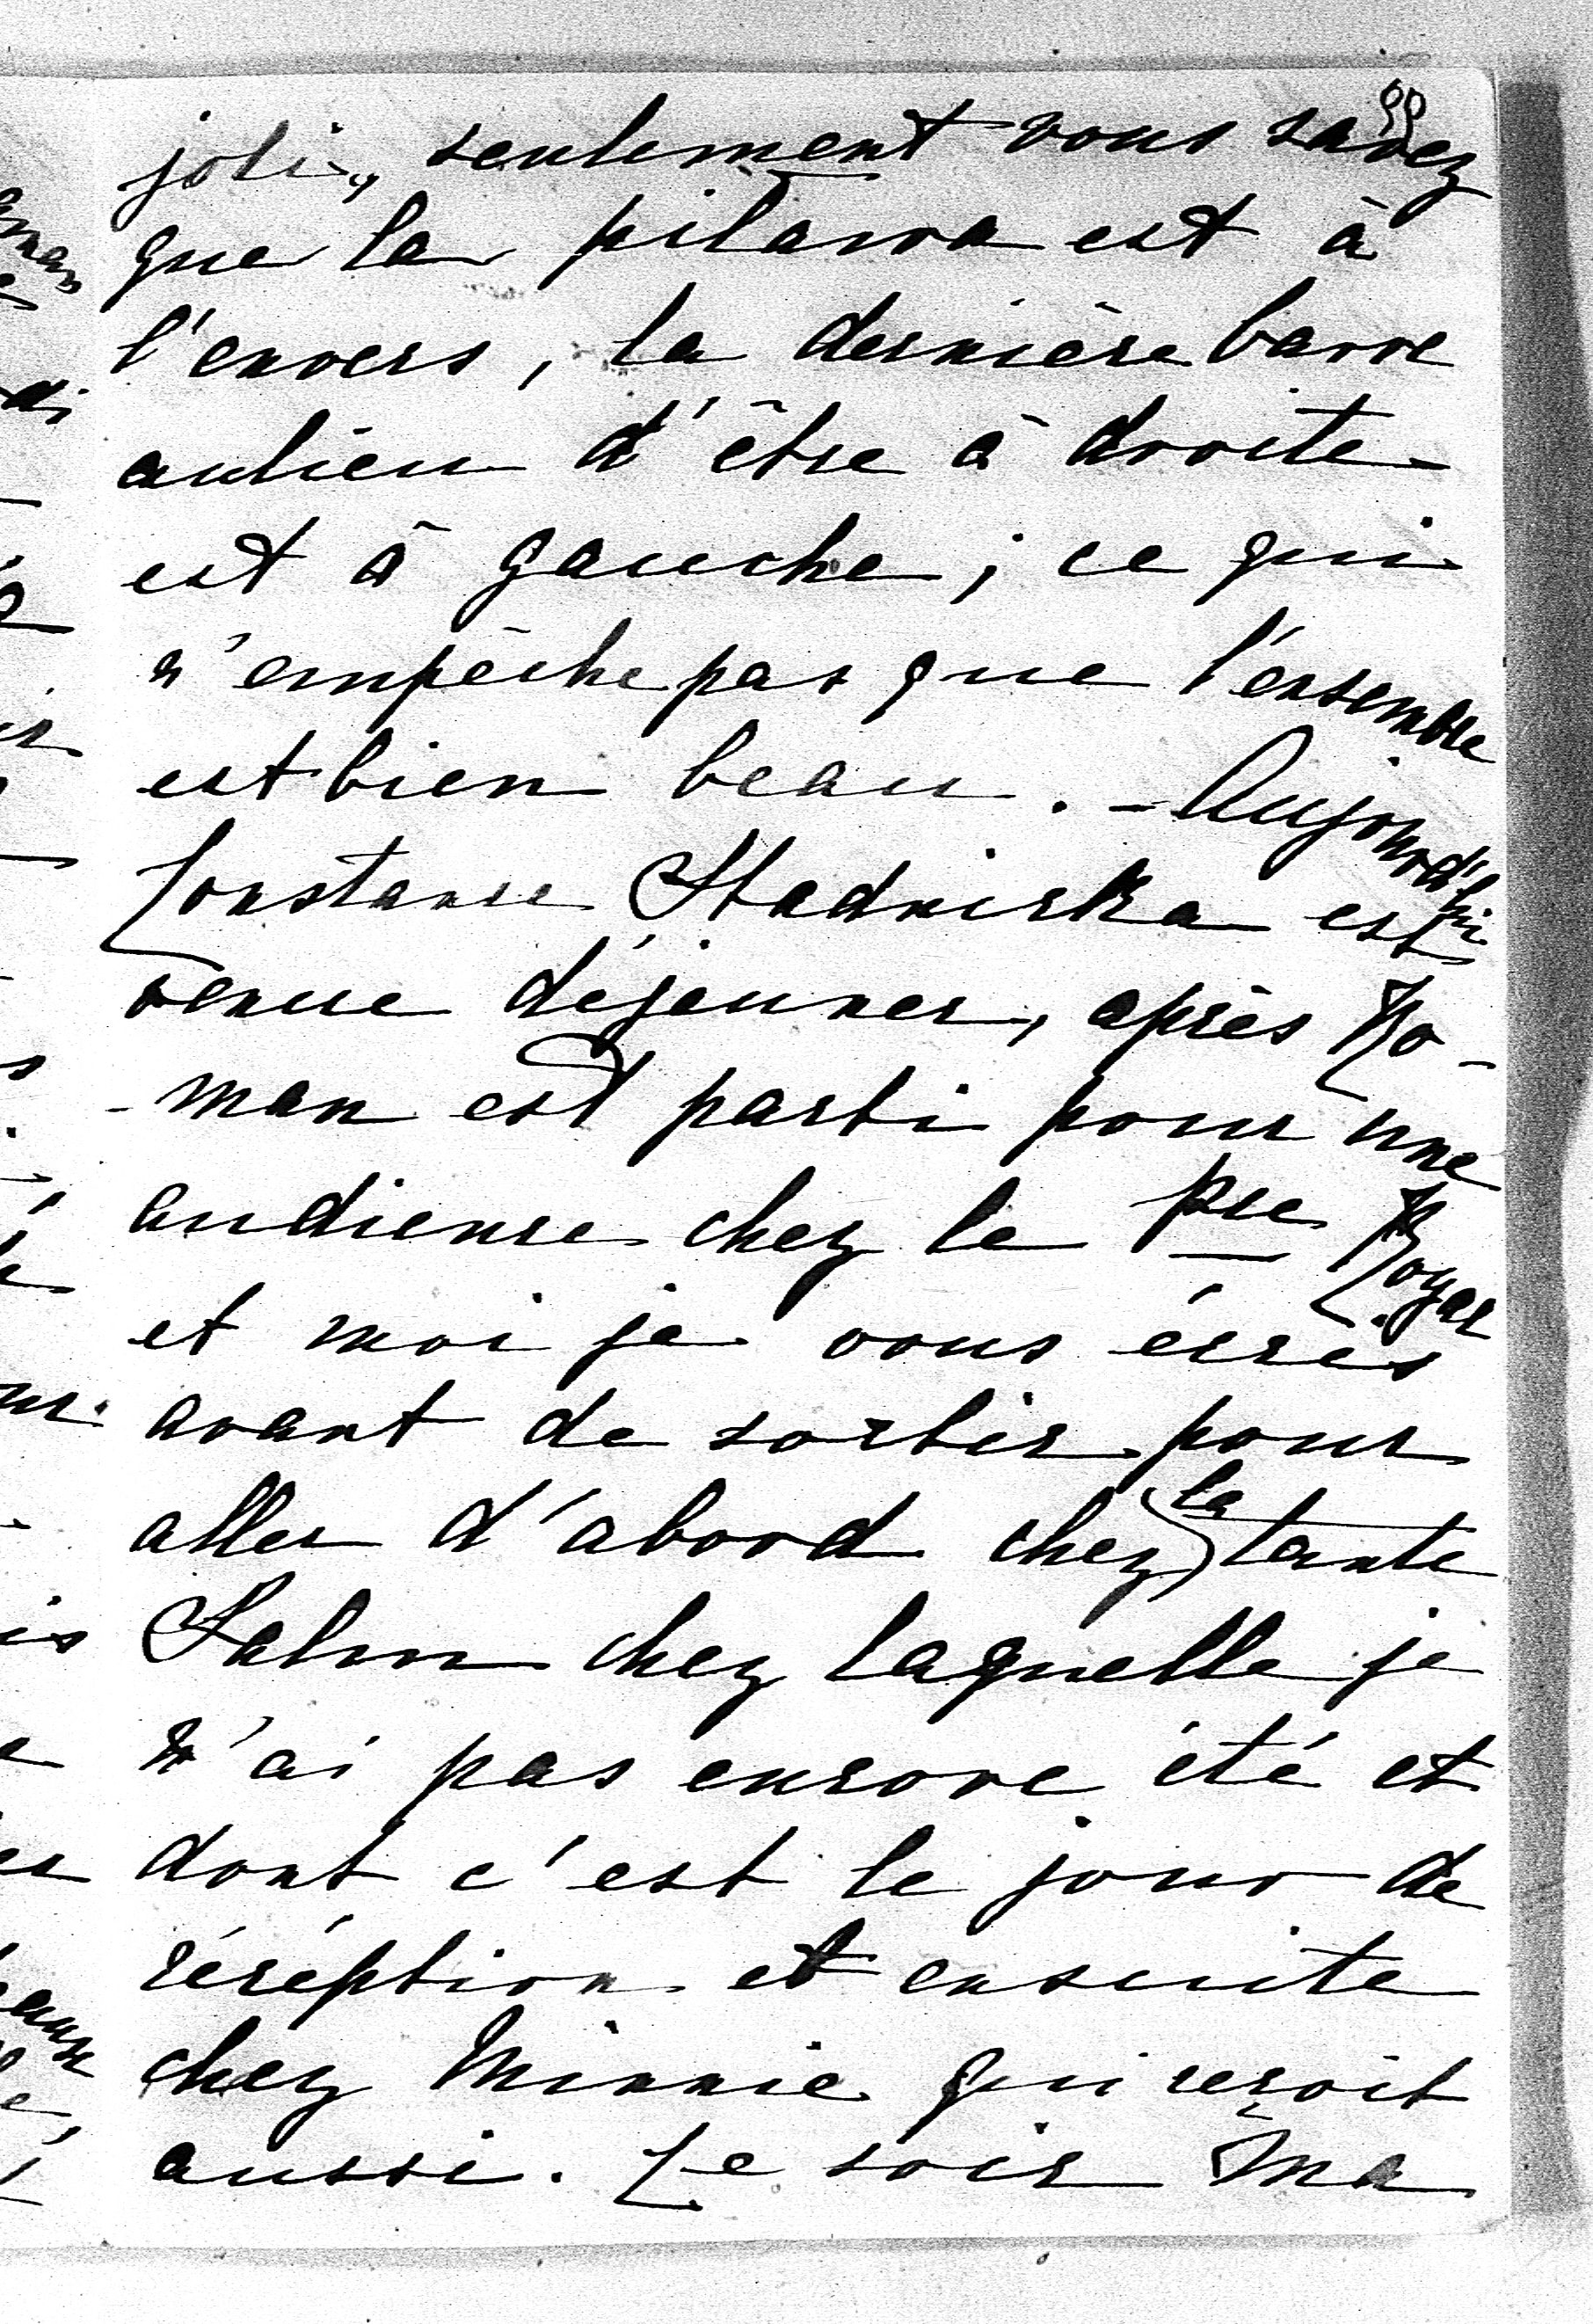 99
joli, seulement vous savez
que la pilawa est à
l'envers, la dernière barre
aulieu d'être à droite
est à gauche ; ce qui
n'empêche pas que l'ensemble
est bien beau. - Aujourd'hui
Constance Stadnicka est
venue déjeuner, après Ro-
-man est parti pour une
audience chez le Pce
et moi je vous écris
avant de sortir pour
aller d'abord chez la tante
Salm chez laquelle je
n'ai pas encore été et
dont c'est le jour de
réception et ensuite
chez Minnie qui reçoit
aussi. Le soir Ma